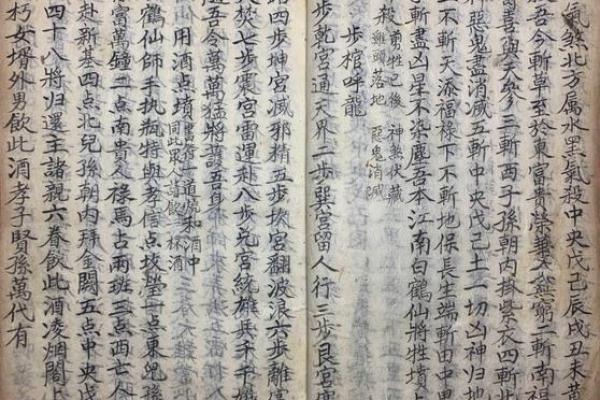 氣煞北方属水黑氣殺中央戊己辰戌丑未黃
吾今斬草至於東富貴榮華大㐫窮二斬南福
喜與天參三斬西子孫朝內掛紫衣四斬北
惡鬼盡消滅五斬中央戊己土一切凶神归地
上不斬天添福祿下不斬地保長生端斬田中
斬盡凶星不染塵吾本江南白鶴仙將牲墳
殺 勇牲已後 神煞伏藏
雞頭落地 惡鬼消滅
步棺呼龍
步乾宮通天界一步巽宮留人行三步艮宮
路四步坤宮滅邪精五步坎宮翻波浪六步離宮
焚七步震宮雷運赴八步兑宮統雄兵千千
隨吾令萬萬猛將護吾身
山用酒点墳 書符一道燒和酒中
同此眾人請飲一杯酒
鶴仙師手执瓶特與孝信点坟塋一点東兒孫
富萬鐘二点南貴人祿馬古兩班三点西亡人
赴新基四点北兒孫朝內拜金闕五点中央戊
四十八將归還主諸親六眷飲此酒凌烟閣上
朽女壻外男飲此酒孝子賢孫萬代有